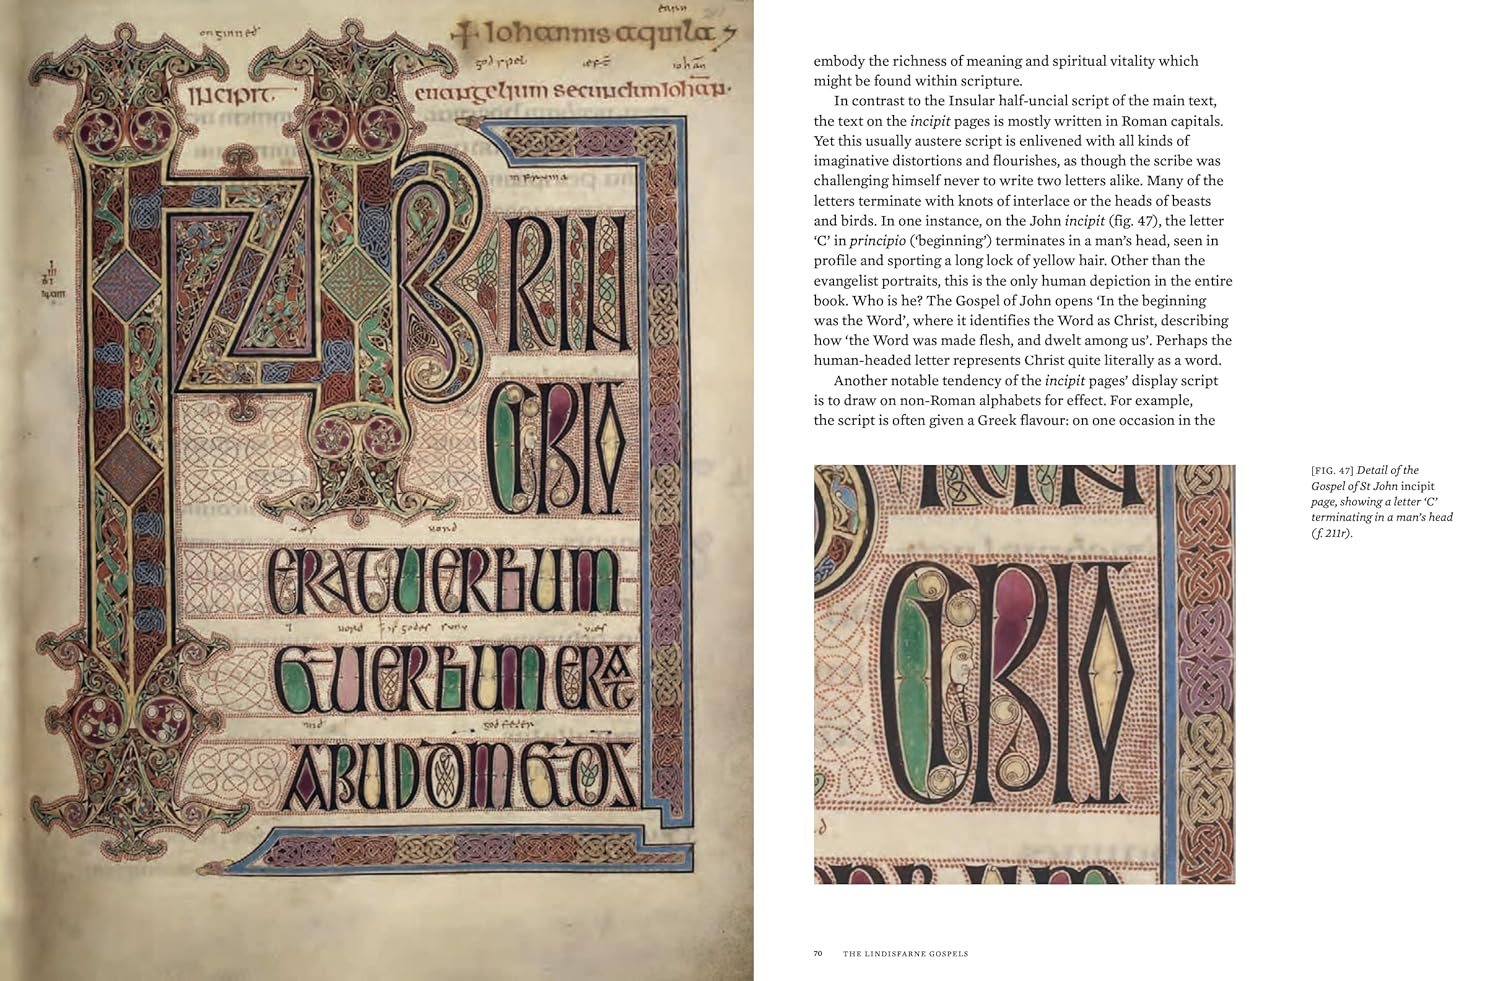 + Iohannis aquila
onginneð
godspel
incipit euangelium secundum iohan·
INPRIN
CIPIO
uæs
uord
ERAT UERBUM
uord
godes sunu
uæs
ET UERBUM ERAT
mið
god feder
APUD DM ET DS
embody the richness of meaning and spiritual vitality which
might be found within scripture.
In contrast to the Insular half-uncial script of the main text,
the text on the incipit pages is mostly written in Roman capitals.
Yet this usually austere script is enlivened with all kinds of
imaginative distortions and flourishes, as though the scribe was
challenging himself never to write two letters alike. Many of the
letters terminate with knots of interlace or the heads of beasts
and birds. In one instance, on the John incipit (fig. 47), the letter
‘C’ in principio (‘beginning’) terminates in a man’s head, seen in
profile and sporting a long lock of yellow hair. Other than the
evangelist portraits, this is the only human depiction in the entire
book. Who is he? The Gospel of John opens ‘In the beginning
was the Word’, where it identifies the Word as Christ, describing
how ‘the Word was made flesh, and dwelt among us’. Perhaps the
human-headed letter represents Christ quite literally as a word.
Another notable tendency of the incipit pages’ display script
is to draw on non-Roman alphabets for effect. For example,
the script is often given a Greek flavour: on one occasion in the
CIPIO
[FIG. 47] Detail of the
Gospel of St John incipit
page, showing a letter ‘C’
terminating in a man’s head
(f. 211r).
70 THE LINDISFARNE GOSPELS